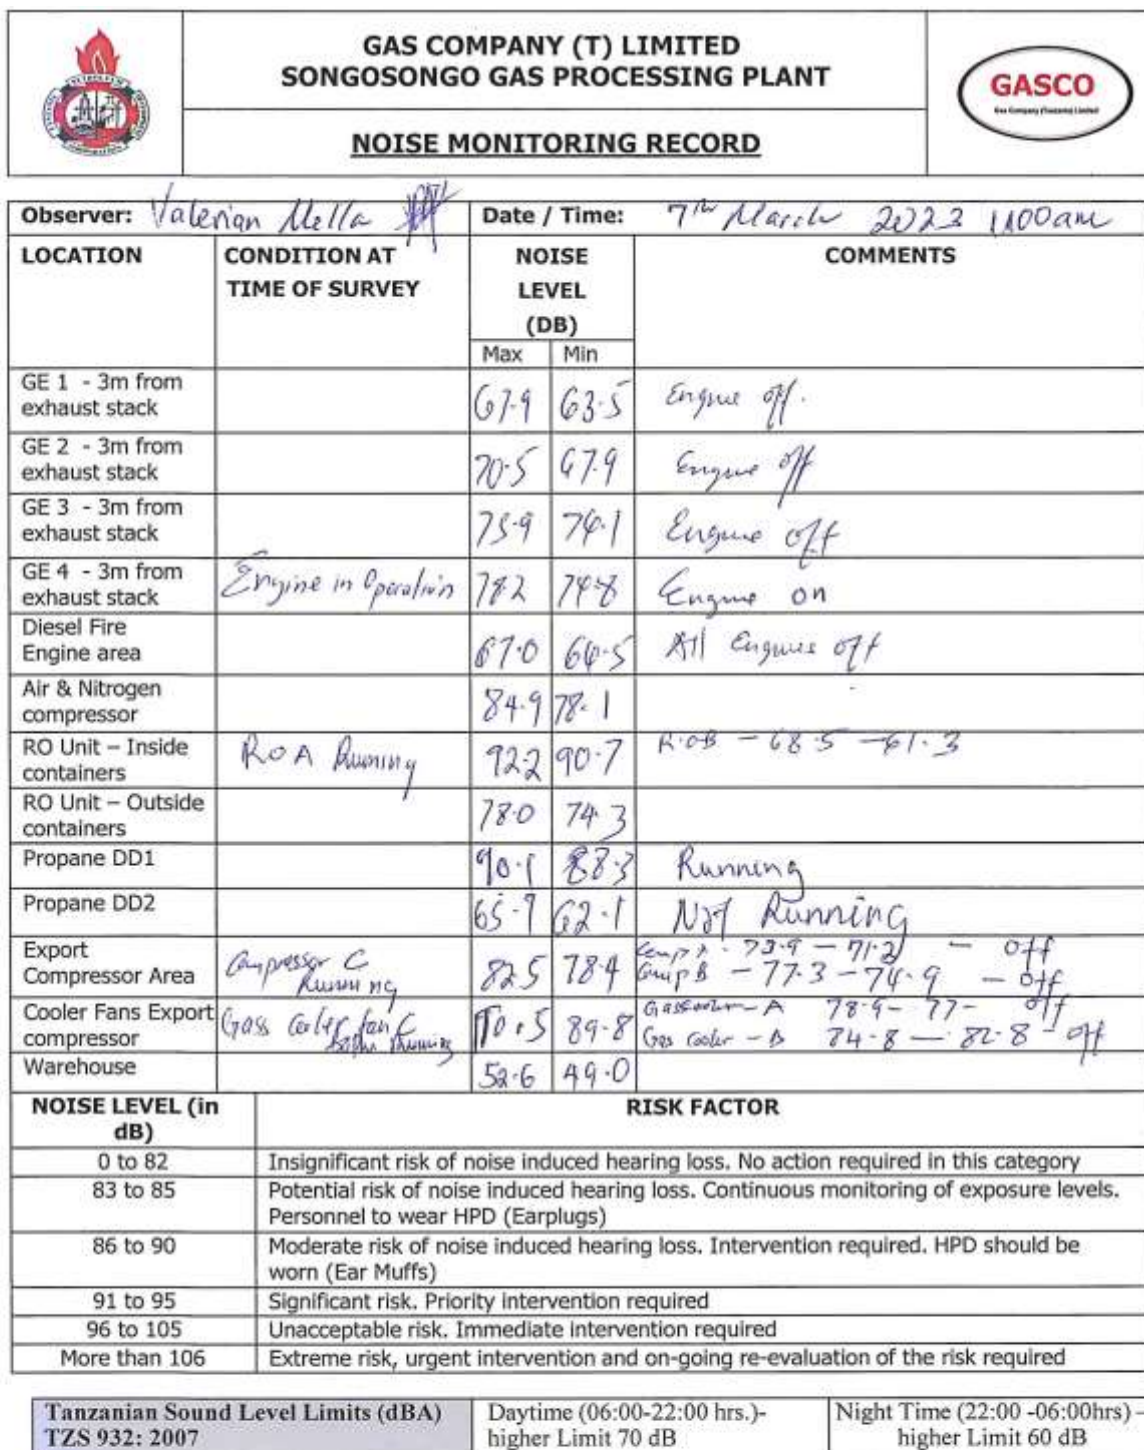 GAS COMPANY (T) LIMITED
SONGOSONGO GAS PROCESSING PLANT
GASCO
Gas Company (Tanzania) Limited
NOISE MONITORING RECORD
Observer: Valerian Mella Date / Time: 7th March 2023 1100am
LOCATION CONDITION AT TIME OF SURVEY NOISE LEVEL (DB) COMMENTS
Max Min
GE 1 - 3m from exhaust stack 67.9 63.5 Engine off.
GE 2 - 3m from exhaust stack 70.5 67.9 Engine off
GE 3 - 3m from exhaust stack 75.9 74.1 Engine off
GE 4 - 3m from exhaust stack Engine in Operation 78.2 74.8 Engine on
Diesel Fire Engine area 67.0 64.5 All Engines off
Air & Nitrogen compressor 84.9 78.1
RO Unit – Inside containers RO A Running 92.2 90.7 R.O B - 68.5 - 61.3
RO Unit – Outside containers 78.0 74.3
Propane DD1 90.1 88.3 Running
Propane DD2 65.9 62.1 Not Running
Export Compressor Area Compressor C Running 82.5 78.4 - 71.2 - off
Comp B - 77.3 - 74.9 - off
Cooler Fans Export compressor Gass Cooler fan C Running 89.8 A 78.9 - 77 - off
Gas cooler - B 74.8 - 82.8 - off
Warehouse 52.6 49.0
NOISE LEVEL (in dB) RISK FACTOR
0 to 82 Insignificant risk of noise induced hearing loss. No action required in this category
83 to 85 Potential risk of noise induced hearing loss. Continuous monitoring of exposure levels.
Personnel to wear HPD (Earplugs)
86 to 90 Moderate risk of noise induced hearing loss. Intervention required. HPD should be
worn (Ear Muffs)
91 to 95 Significant risk. Priority intervention required
96 to 105 Unacceptable risk. Immediate intervention required
More than 106 Extreme risk, urgent intervention and on-going re-evaluation of the risk required
Tanzanian Sound Level Limits (dBA) Daytime (06:00-22:00 hrs.)- Night Time (22:00 -06:00hrs) –
TZS 932: 2007 higher Limit 70 dB higher Limit 60 dB